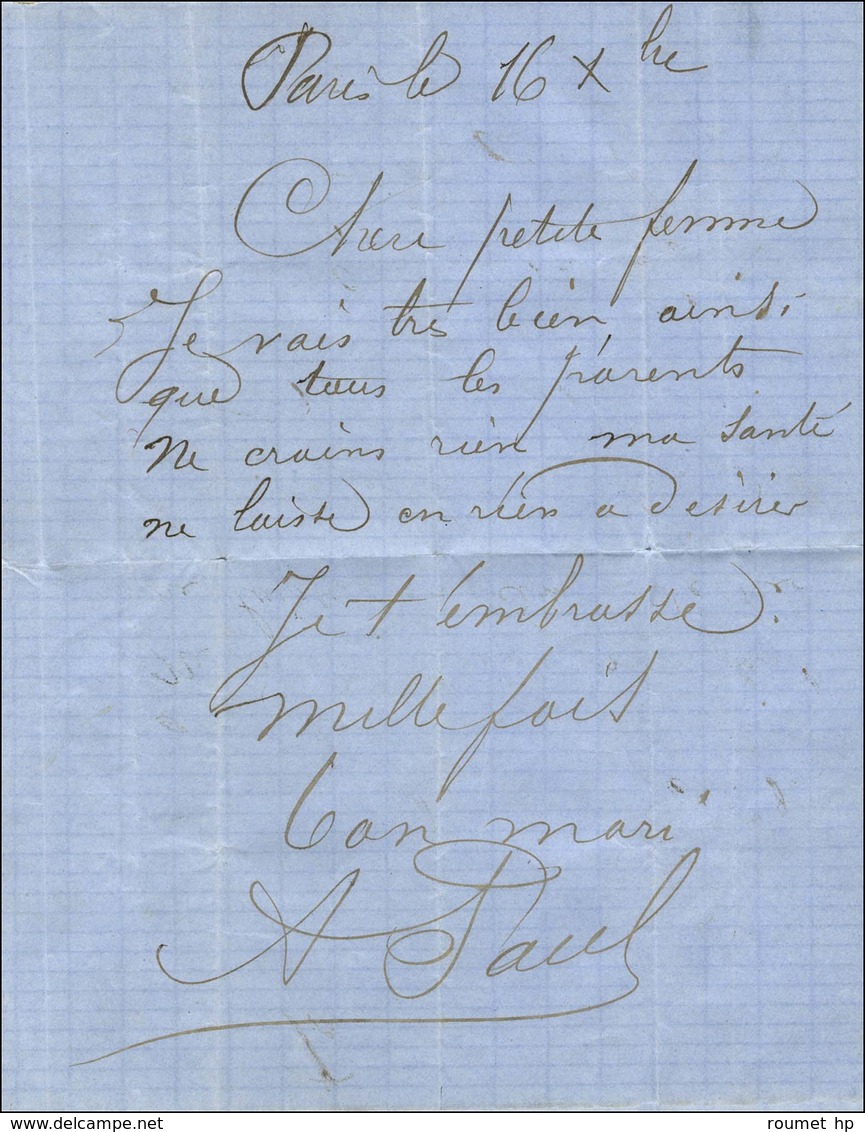 Paris le 16 Xbre
Chere petite femme
Je vais tres bien ainsi
que tous les parents
Ne crains rien ma santé
ne laisse en rien a desirer
Je t'embrasse
mille fois
Ton mari
A Paul
www.delcampe.net
roumet hp